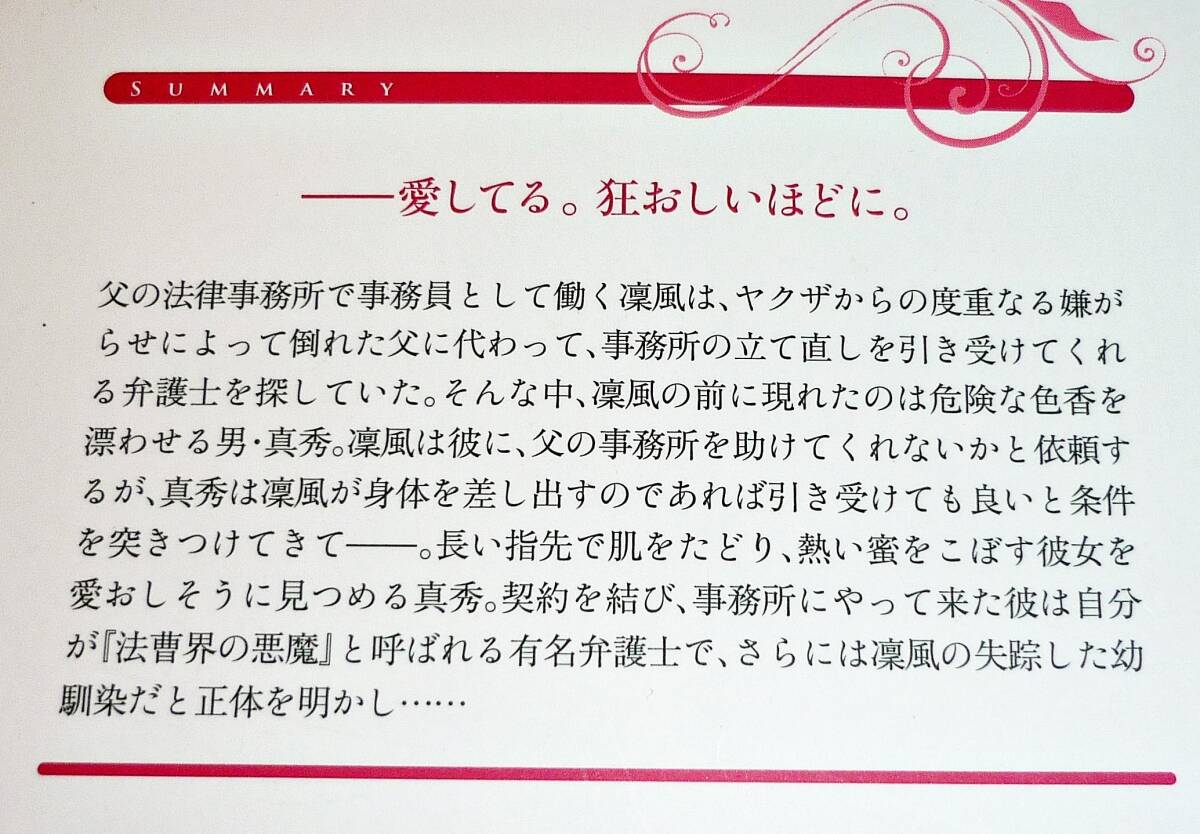 SUMMARY
――愛してる。狂おしいほどに。
父の法律事務所で事務員として働く凜風は、ヤクザからの度重なる嫌が
らせによって倒れた父に代わって、事務所の立て直しを引き受けてくれ
る弁護士を探していた。そんな中、凜風の前に現れたのは危険な色香を
漂わせる男・真秀。凜風は彼に、父の事務所を助けてくれないかと依頼す
るが、真秀は凜風が身体を差し出すのであれば引き受けても良いと条件
を突きつけてきて――。長い指先で肌をたどり、熱い蜜をこぼす彼女を
愛おしそうに見つめる真秀。契約を結び、事務所にやって来た彼は自分
が『法曹界の悪魔』と呼ばれる有名弁護士で、さらには凜風の失踪した幼
馴染だと正体を明かし……